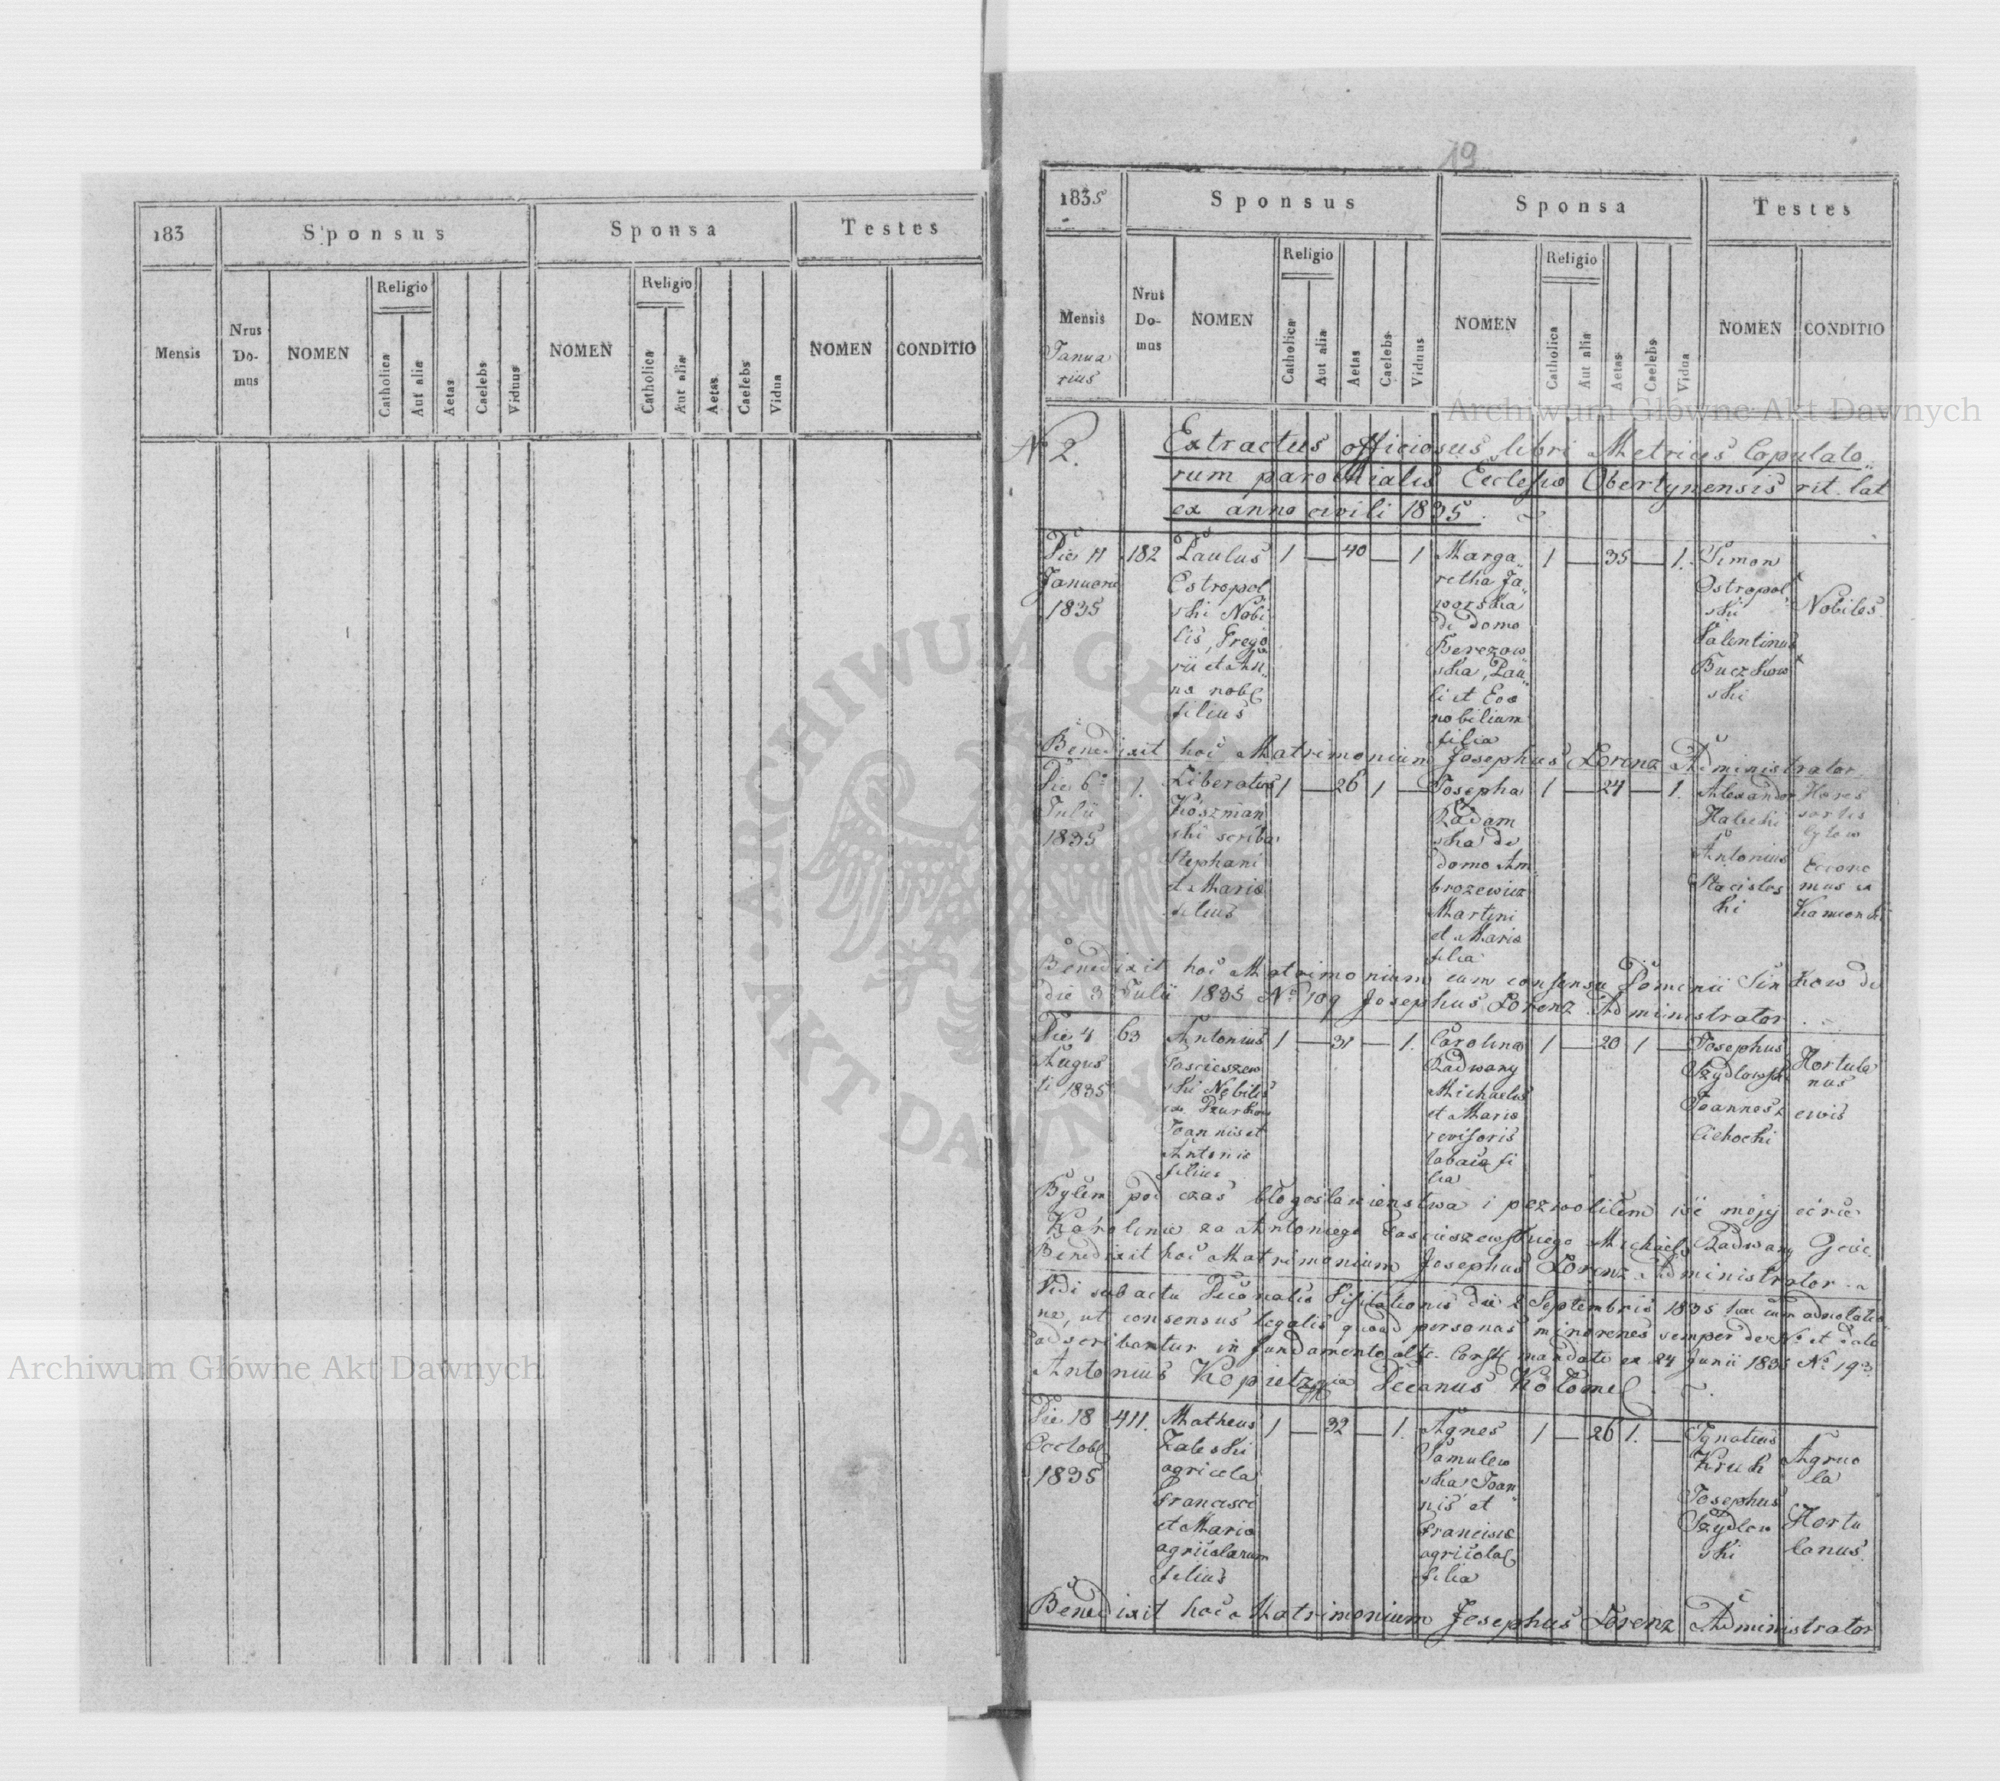 183
Sponsus
Sponsa
Testes
Mensis
Nrus Do- mus
NOMEN
Religio
Catholica
Aut alia
Aetas
Caelebs
Viduus
NOMEN
Religio
Catholica
Aut alia
Aetas
Caelebs
Vidua
NOMEN
CONDITIO
19
1835
Sponsus
Sponsa
Testes
Mensis
Janua
rius
Nrus Do- mus
NOMEN
Religio
Catholica
Aut alia
Aetas
Caelebs
Viduus
NOMEN
Religio
Catholica
Aut alia
Aetas
Caelebs
Vidua
NOMEN
CONDITIO
Archiwum Główne Akt Dawnych
N 2.
Extractus officiosus libri Metrices Copulato
rum parochialis Ecclesiae Obertynensis rit. lat
ex anno civili 1835.
Die 11
Januarii
1835
182
Paulus
Ostropol
ski Nobi
lis, Grego
rii et An
na nobl
filius
1 — 40 — 1
Marga
retha Ja
worska
de domo
Berezow
ska, Pau
li et Eva
nobilium
filia
1 — 35 — 1.
Simon
Ostropol
ski
Valentinus
Buczkow
ski
Nobiles
Benedixit hoc Matrimonium Josephus Lorenz Administrator
Die 6
Julii
1835
1.
Liberatus
Kosmian
ski scriba
Stephani
et Maria
filius
1 — 26 1 —
Josepha
Radom
ska de
domo Am
brozewicz
Martini
et Maria
filia
1 — 24 — 1.
Alexander
Halecki
Antonius
ski
Econo
mus ex
Kamionki
Benedixit hoc Matrimonium cum consensu Dominii Sinkow de
die 3 Julii 1835 No 109 Josephus Lorenz Administrator
Die 4
Augus
ti 1835
63
Antonius
Jascieszew
ski Nobilis
ex
Joannis et
Antonia
filius
1 — 31 — 1.
Carolina
Radwany
Michaelis
et Maria
revisoris
tabaca fi
lia
1 — 20 1 —
Josephus
Szydlowsk
Joannes
Cichocki
Hortula
nus
civis
Byłem pod czas błogosławienstwa i pozwoliłem iść mojej córce
Karolinie za Antoniego Jascieszewskiego Michael Radwany Ojciec
Benedixit hoc Matrimonium Josephus Lorenz Administrator
Vidi sub actu Decanalis Visitationis die 2 Septembris 1835 hac cum adnotatio
ne, ut consensus legalis quoad personas minorenes semper de No et dato
adscribantur in fundamento Consist mandati ex 24 Junii 1835 No 193
Antonius Decanus Kołome
Die 18
Octobr
1835
411.
Matheus
Zaleski
agricola
Francisci
et Maria
agricolarum
filius
1 — 32 — 1.
Agnes
Samulew
ska Joan
nis et
Francisca
agricola
filia
1 — 26 1. —
Ignatius
Kruk
Josephus
Szydlow
ski
Agrico
la
Hortu
lanus
Benedixit hoc Matrimonium Josephus Lorenz Administrator
ARCHIWUM GŁÓWNE AKT DAWNYCH
Archiwum Główne Akt Dawnych